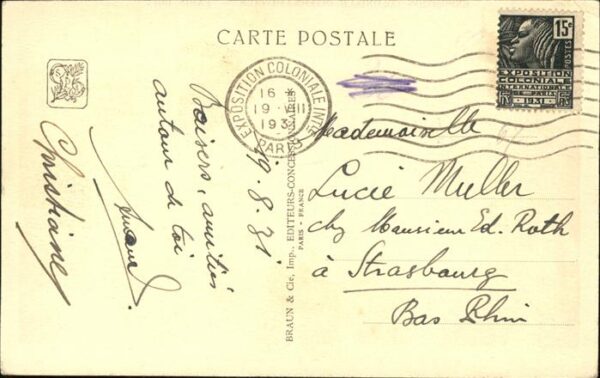 CARTE POSTALE
15c
POSTES
EXPOSITION
COLONIALE
INTERNATIONALE
PARIS
1931
EXPOSITION COLONIALE INTLE
PARIS
16
19 · VIII
193
Baisers, amitiés
autour de toi
Christiane
19.8.31.
BRAUN & Cie, Imp., EDITEURS-CONCESSIONNAIRES
PARIS - FRANCE
Mademoiselle
Lucie Muller
chez Monsieur Ed. Roth
à Strasbourg
Bas Rhin